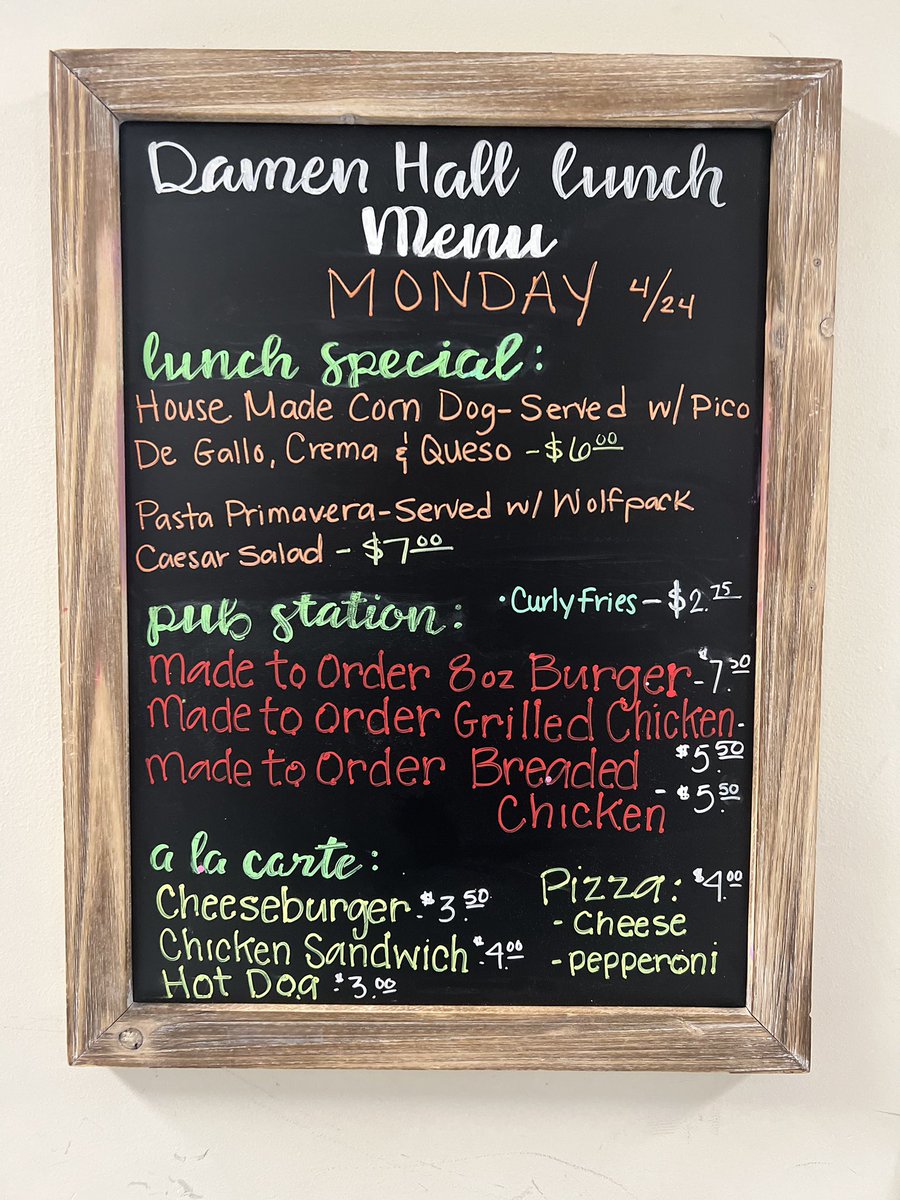 Damen Hall lunch
Menu
MONDAY 4/24
lunch special:
House Made Corn Dog-Served w/ Pico
De Gallo, Crema & Queso - $6.00
Pasta Primavera-Served w/ Wolfpack
Caesar Salad - $7.00
pub station:
• Curly Fries - $2.75
Made to Order 8oz Burger - $7.50
Made to Order Grilled Chicken -
$5.50
Made to Order Breaded
Chicken - $5.50
a la carte:
Cheeseburger - $3.50
Chicken Sandwich - $4.00
Hot Dog - $3.00
Pizza: $4.00
- Cheese
- pepperoni